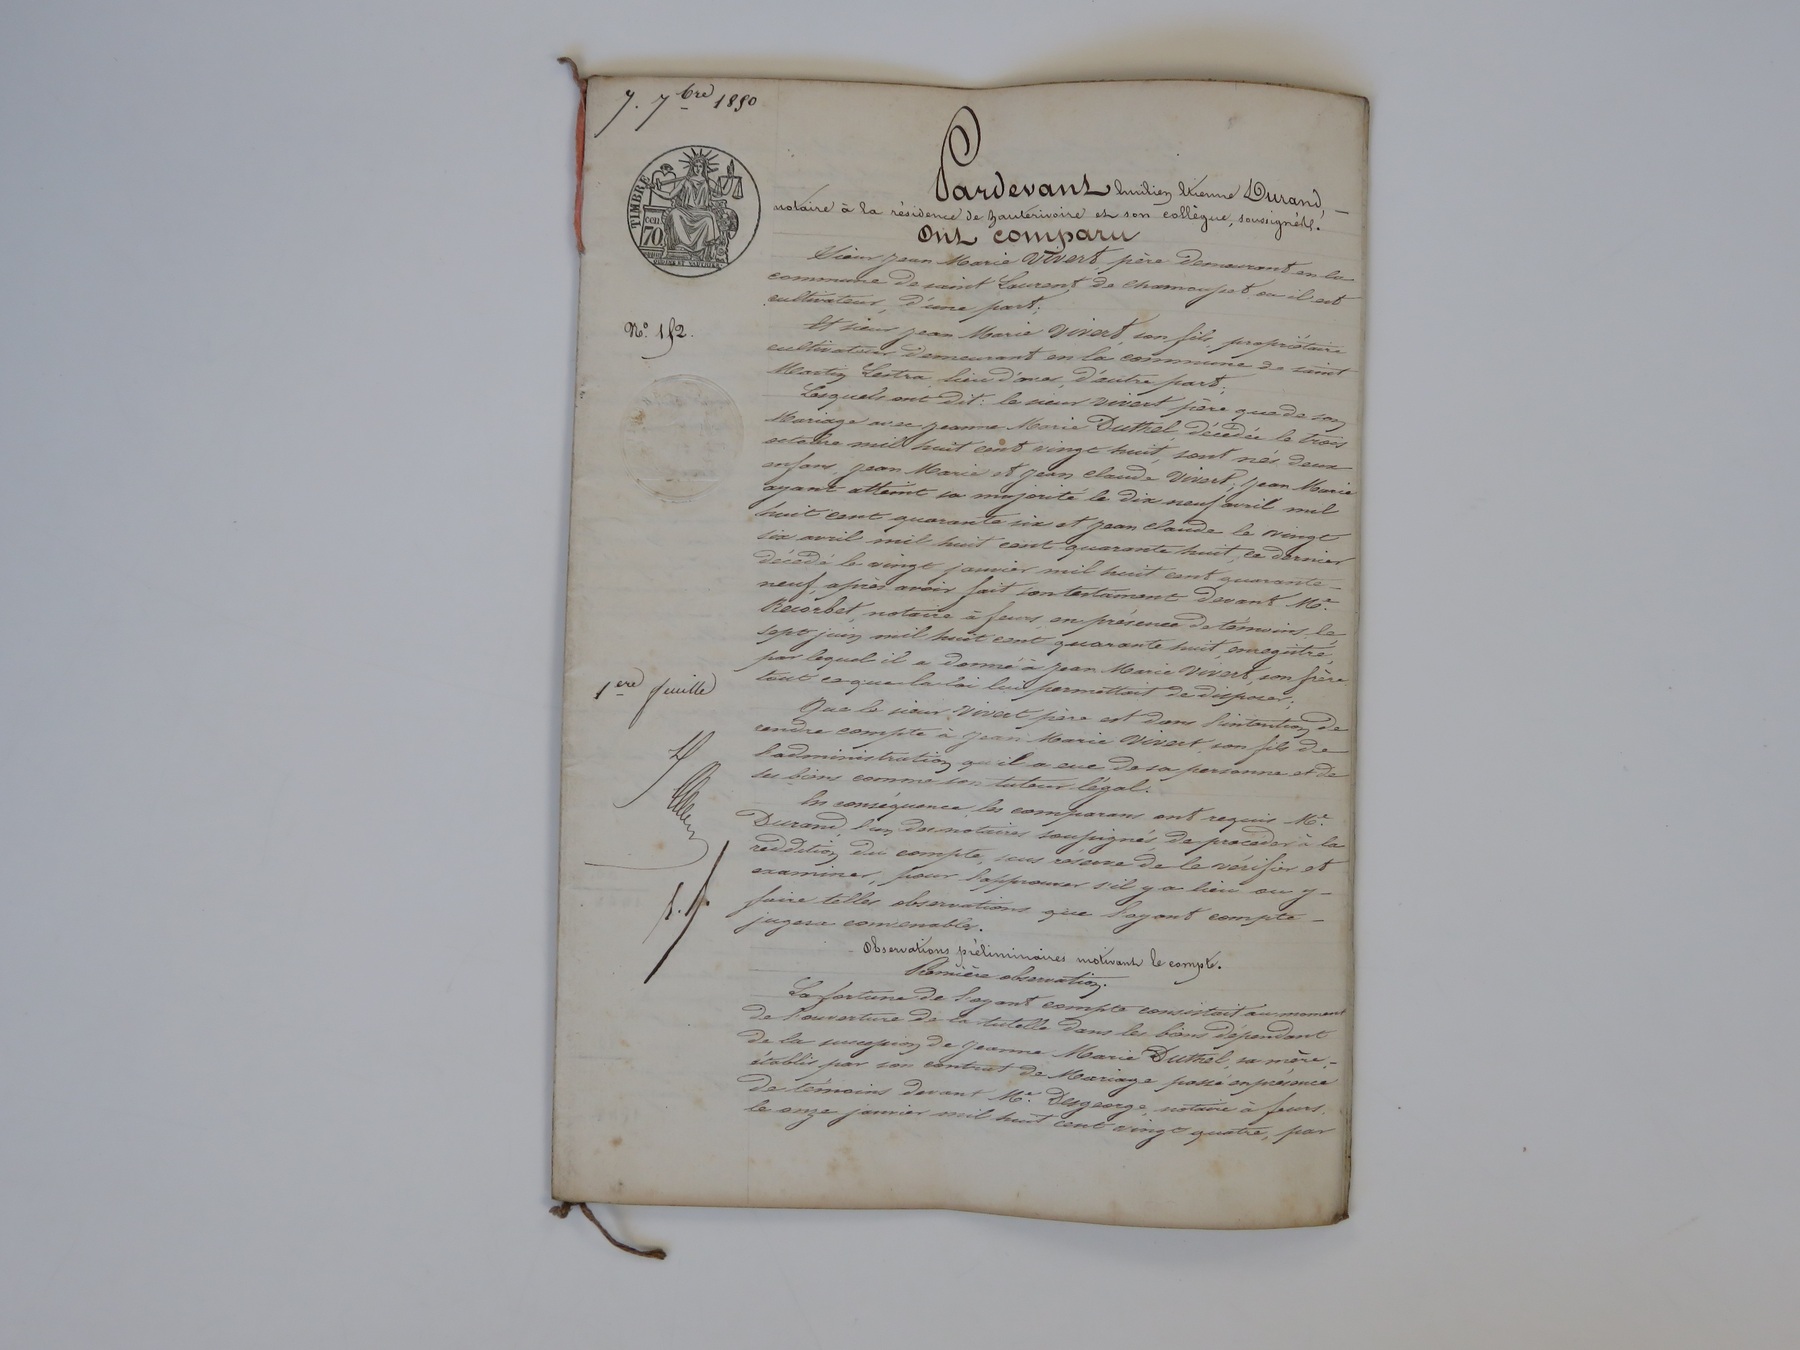 7. 7bre 1850
TIMBRE
CEN.
70
Pardevant Emilien Etienne Durand,
notaire à la résidence de hauterivoire et son collègue, soussignés.
Ont comparu
Sieur Jean Marie Vivert père demeurant en la
commune de saint Laurent de Chamousset où il est
cultivateur, d'une part;
Et sieur Jean Marie Vivert, son fils, propriétaire
cultivateur demeurant en la commune de saint
Martin Lestra, lieu d'ores, d'autre part;
Lesquels ont dit: le sieur Vivert père que de son
Mariage avec Jeanne Marie Duthel, décédée le trois
octobre mil huit cent vingt huit, sont nés deux
enfans, Jean Marie et Jean Claude Vivert; Jean Marie
ayant atteint sa majorité le dix neuf avril mil
huit cent quarante six et Jean Claude le vingt
six avril mil huit cent quarante huit, ce dernier
décédé le vingt janvier mil huit cent quarante
neuf, après avoir fait son testament devant Me.
Recorbet, notaire à feurs, en présence de témoins, le
sept juin mil huit cent quarante huit, enregistré,
par lequel il a donné à Jean Marie Vivert, son frère
tout ce que la loi lui permettait de disposer;
Que le sieur Vivert père est dans l'intention de
rendre compte à Jean Marie Vivert, son fils de
l'administration qu'il a eue de sa personne et de
ses biens comme son tuteur légal.
En conséquence, les comparans ont requis Me.
Durand, l'un des notaires soussignés de procéder à la
reddition du compte, sous réserve de le vérifier et
examiner, pour l'approuver s'il y a lieu ou y
faire telles observations que l'oyant compte
jugera convenables.
Observations préliminaires motivant le compte.
Première observation.
La fortune de l'oyant compte consistait au moment
de l'ouverture de la tutelle dans les biens dépendant
de la succession de Jeanne Marie Duthel, sa mère,
établis par son contrat de Mariage passé en présence
de témoins devant Me. Desgeorge, notaire à feurs,
le onze janvier mil huit cent vingt quatre, par
No. 152.
1ere feuille